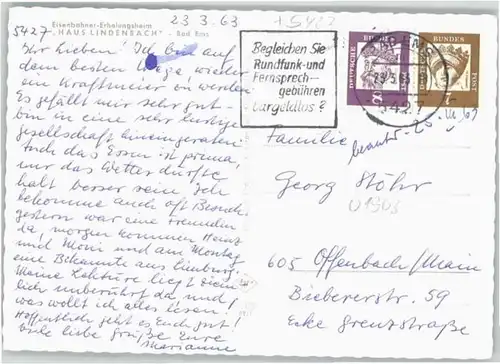 23.3.63
+ 5422
Eisenbahner-Erholungsheim
"HAUS LINDENBACH" - Bad Ems
5427.
Ihr Lieben! Ich bin auf
dem besten Wege, wieder
ein Kraftmeier zu werden.
Es gefällt mir sehr gut.
bin in eine sehr lustige
Gesellschaft hineingeraten.
Auch das Essen ist prima,
nur das Wetter dürfte
halt besser sein. Ich
bekomme auch oft Besuch,
gestern war eine Freundin
da, morgen kommen Heinz
und Moni und am Montag
eine Bekannte aus Limburg.
Meine Lektüre liegt
unberührt da, und
was wollt ich alles lesen!
Hoffentlich geht es Euch gut!
Viele liebe Grüße Eure
Marianne
Begleichen Sie
Rundfunk-und
Fernsprech-
gebühren
bargeldlos?
BAD EMS
23.3.63
5427
DEUTSCHE
BUNDES
POST
DEUTSCHE
BUNDES
POST
beantw. 20. III. 63
Familie
Georg Stöhr
01903
605 Offenbach/Main
Biebererstr. 59
Ecke Grenzstraße